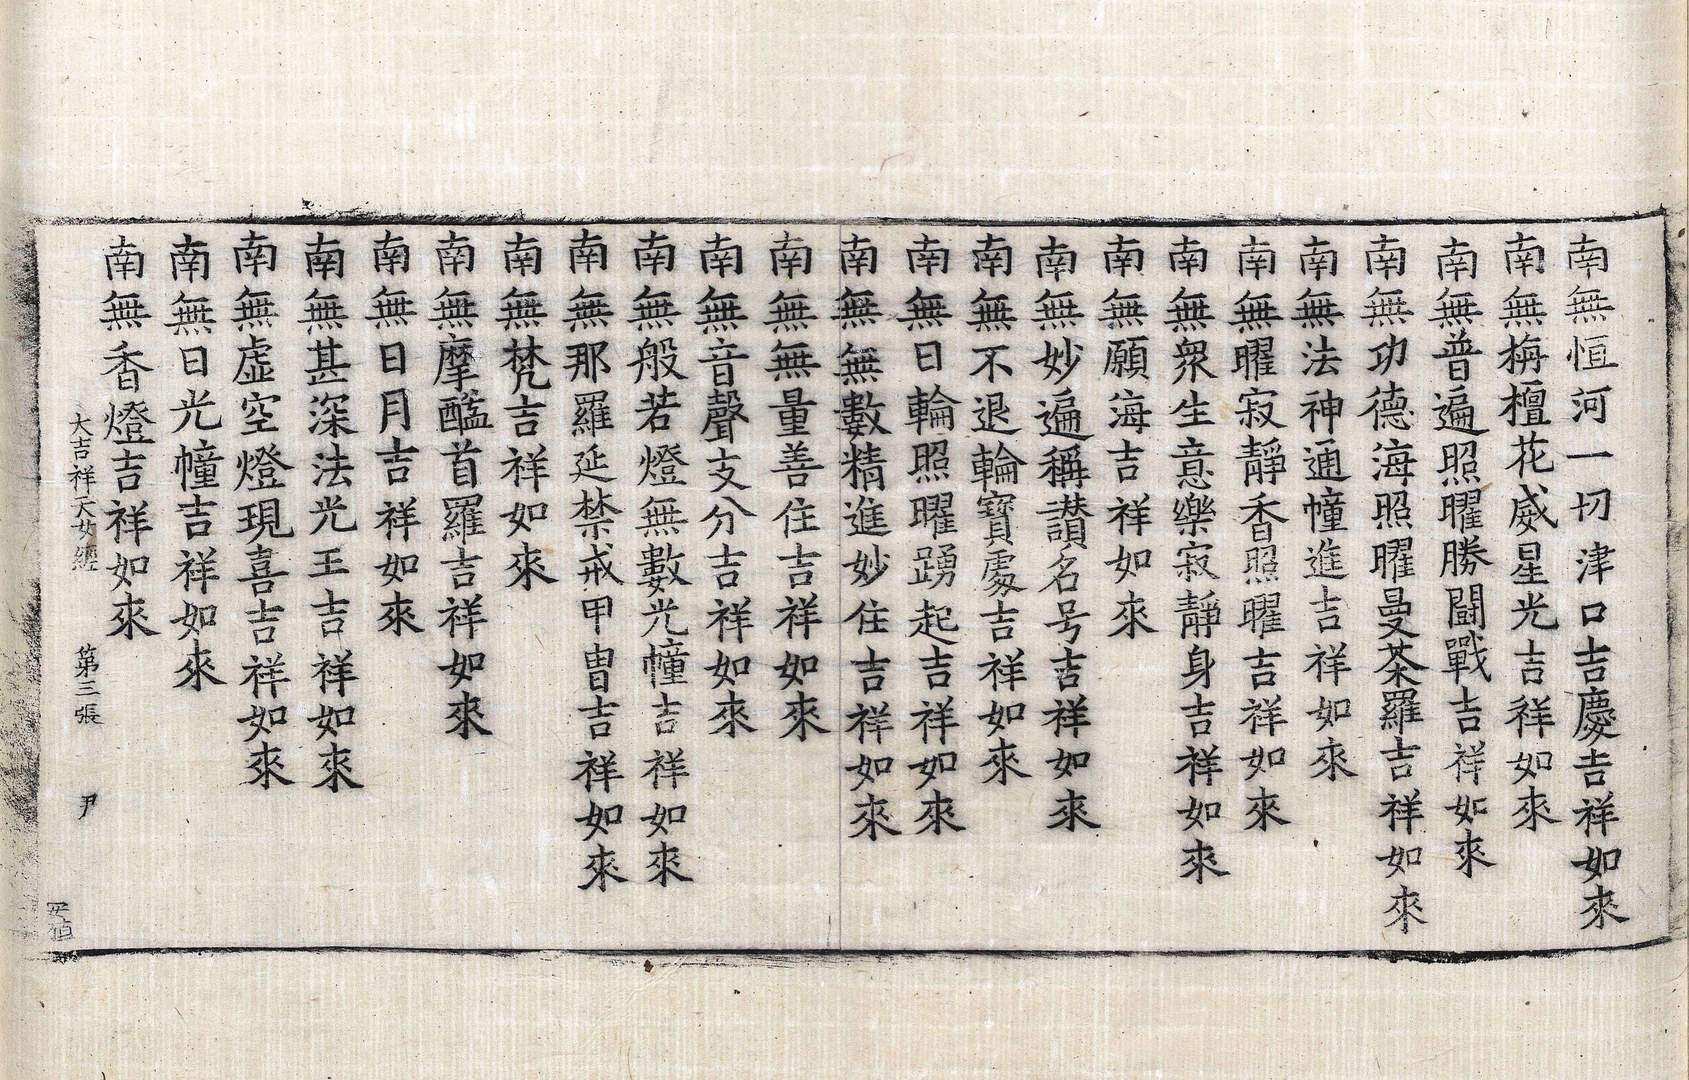 南無恒河一切津口吉慶吉祥如來
南無栴檀花威星光吉祥如來
南無普遍照曜勝鬪戰吉祥如來
南無功德海照曜曼茶羅吉祥如來
南無法神通幢進吉祥如來
南無曜寂靜香照曜吉祥如來
南無衆生意樂寂靜身吉祥如來
南無願海吉祥如來
南無妙遍稱讃名号吉祥如來
南無不退輪寶處吉祥如來
南無日輪照曜踴起吉祥如來
南無無數精進妙住吉祥如來
南無無量善住吉祥如來
南無音聲支分吉祥如來
南無般若燈無數光幢吉祥如來
南無那羅延禁戒甲冑吉祥如來
南無梵吉祥如來
南無摩醯首羅吉祥如來
南無日月吉祥如來
南無甚深法光王吉祥如來
南無虛空燈現喜吉祥如來
南無日光幢吉祥如來
南無香燈吉祥如來
大吉祥天女經 第三張 尹